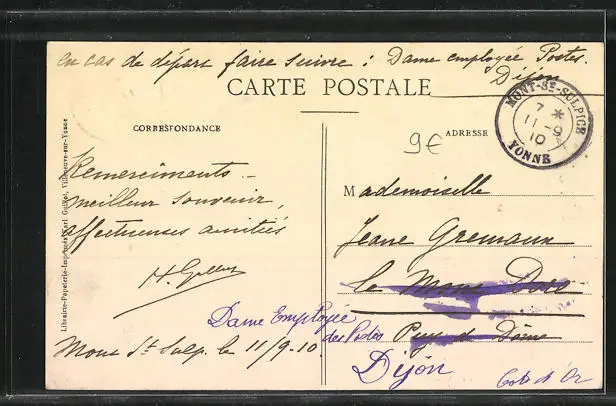 en cas de départ faire suivre : Dame employée Postes.
Dijon
CARTE POSTALE
MONT-St-SULPICE
7 *
11-9
10
YONNE
CORRESPONDANCE
ADRESSE
9€
Remerciments –
meilleur souvenir,
affectueuses amitiés
Mont St Sulp. le 11/9-10.
Mademoiselle
Jeane Gremaux
le Mont Dore
Puy de Dôme
Dame Employée
des Postes
Dijon
Cote d'Or
Librairie-Papeterie-Imprimés Karl Guillot, Villeneuve-sur-Yonne